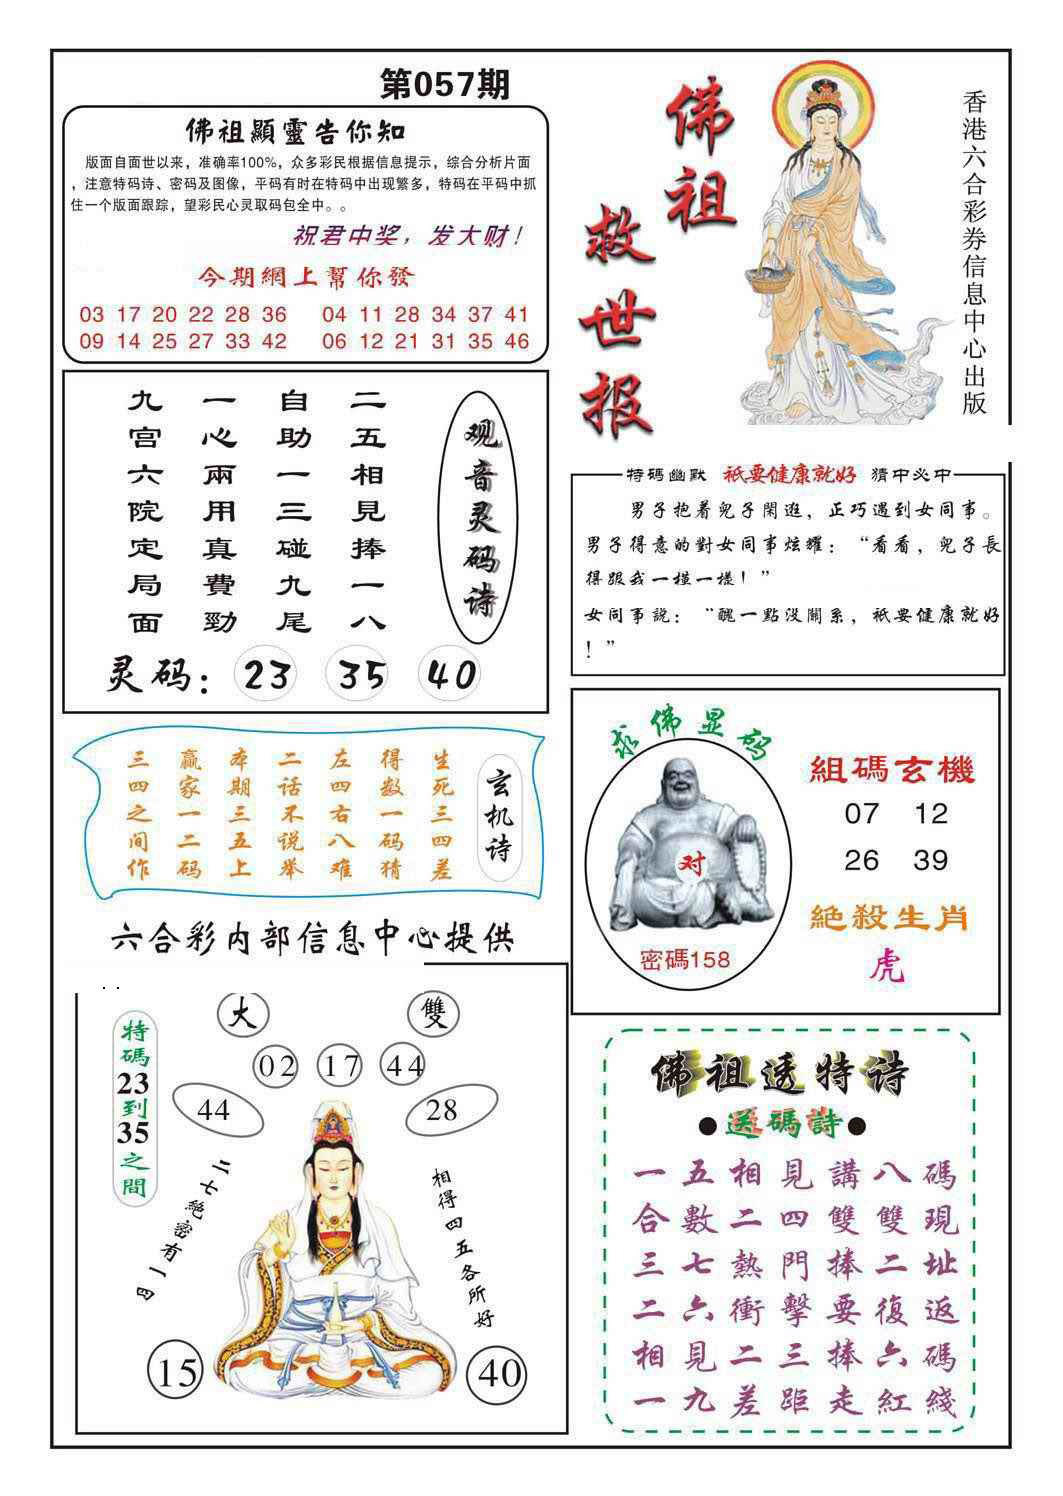 第057期
佛祖顯靈告你知
版面自面世以来，准确率100%，众多彩民根据信息提示，综合分析片面
，注意特码诗、密码及图像，平码有时在特码中出现繁多，特码在平码中抓
住一个版面跟踪，望彩民心灵取码包全中。。
祝君中奖，发大财！
今期網上幫你發
03 17 20 22 28 36 04 11 28 34 37 41
09 14 25 27 33 42 06 12 21 31 35 46
佛祖
救世报
香港六合彩券信息中心出版
观音灵码诗
二五相見捧一八
自助一三碰九尾
一心兩用真費勁
九宫六院定局面
灵码：23 35 40
特碼幽默 祇要健康就好 猜中必中
男子抱着兒子閑逛，正巧遇到女同事。
男子得意的對女同事炫耀：“看看，兒子長
得跟我一模一樣！”
女同事説：“醜一點没關系，祇要健康就好
！”
玄机诗
生死三四差
得数一码猜
左四右八难
二话不说举
本期三五上
赢家一二码
三四之间作
求佛显码
对
密碼158
組碼玄機
07 12
26 39
絕殺生肖
虎
六合彩内部信息中心提供
特碼23到35之間
大
雙
02 17 44
44
28
二七絶密有一四
相得四五各所好
15
40
佛祖透特诗
●送碼詩●
一五相見講八碼
合數二四雙雙現
三七熱門捧二址
二六衝擊要復返
相見二三捧六碼
一九差距走紅綫